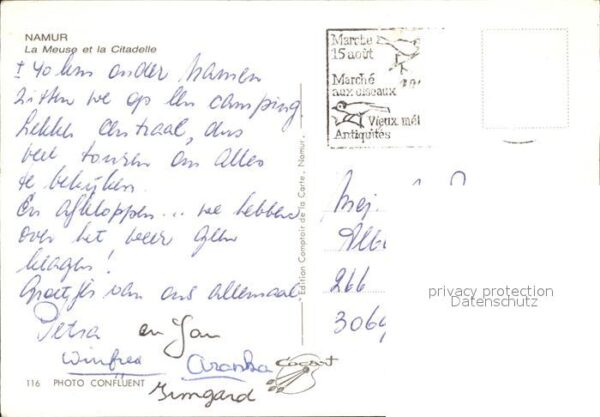 NAMUR
La Meuse et la Citadelle
± 40 km onder Namen
zitten we op een camping
lekker centraal, dus
veel touren om alles
te bekijken.
En afkloppen... we hebben
over het weer geen
klagen!
Groetjes van ons allemaal
Petra en Jan
Winfred Aranka
Irmgard
116 PHOTO CONFLUENT
Edition Comptoir de la Carte, Namur.
Marche
15 août
Marché
aux oiseaux
Vieux mét
Antiquités
Mej.
Albe
266
3069
privacy protection
Datenschutz